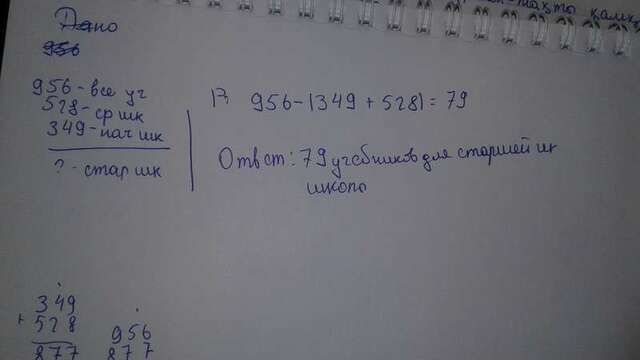 Дано
956
956 - все уч
528 - ср шк
349 - нач шк
? - старшк
1) 956 - (349 + 528) = 79
Ответ: 79 учебников для старшей шк
школо
349
+ 528
877
956
877